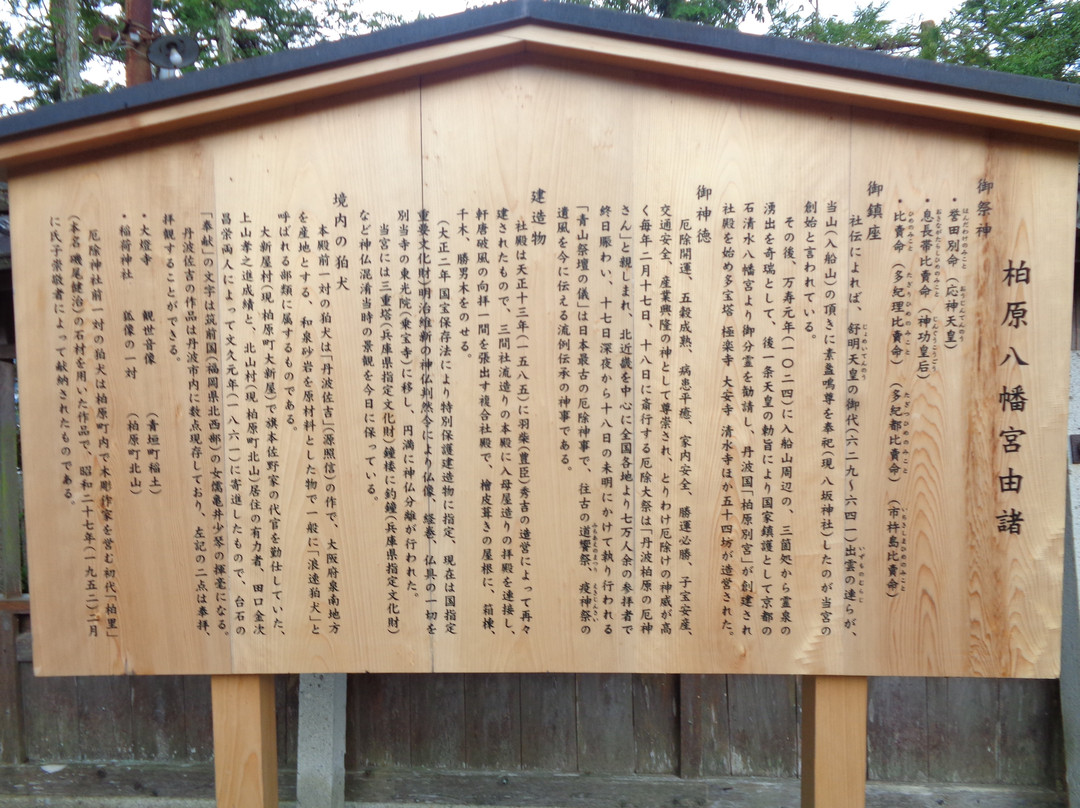 柏原八幡宮由緒
御祭神
・誉田別命（応神天皇）
・息長帯比賣命（神功皇后）
・比賣命（多紀理比賣命）（多紀都比賣命）（市杵島比賣命）
御鎮座
社伝によれば、舒明天皇の御代（六二九〜六四一）出雲の連らが、
当山（入船山）の頂きに素盞嗚尊を奉祀（現八坂神社）したのが当宮の
創始と言われている。
その後、万寿元年（一〇二四）に入船山周辺の、三箇処から霊泉の
湧出を奇瑞として、後一条天皇の勅旨により国家鎮護として京都の
石清水八幡宮より御分霊を勧請し、丹波国「柏原別宮」が創建され
社殿を始め多宝塔 極楽寺 大安寺 清水寺ほか五十四坊が造営された。
御神徳
厄除開運、五穀成熟、病患平癒、家内安全、勝運必勝、子宝安産、
交通安全、産業興隆の神として尊崇され、とりわけ厄除けの神威が高
く毎年二月十七日、十八日に斎行する厄除大祭は「丹波柏原の厄神
さん」と親しまれ、北近畿を中心に全国各地より七万人余の参拝者で
終日賑わい、十七日深夜から十八日の未明にかけて執り行われる
「青山祭壇の儀」は日本最古の厄除神事で、往古の道饗祭、疫神祭の
遺風を今に伝える流例伝承の神事である。
建造物
社殿は天正十三年（一五八五）に羽柴（豊臣）秀吉の造営によって再々
建されたもので、三間社流造りの本殿に入母屋造りの拝殿を連接し、
軒唐破風の向拝一間を張出す複合社殿で、檜皮葺きの屋根に、箱棟、
千木、勝男木をのせる。
（大正二年国宝保存法により特別保護建造物に指定、現在は国指定
重要文化財）明治維新の神仏判然令により仏像、経巻、仏具の一切を
別当寺の東光院（乗宝寺）に移し、円満に神仏分離が行われた。
当宮には三重塔（兵庫県指定文化財）鐘楼に釣鐘（兵庫県指定文化財）
など神仏混淆当時の景観を今日に保っている。
境内の狛犬
本殿前一対の狛犬は「丹波佐吉」（源照信）の作で、大阪府泉南地方
を産地とする、和泉砂岩を原材料とした物で一般に「浪速狛犬」と
呼ばれる部類に属するものである。
大新屋村（現柏原町大新屋）で旗本佐野家の代官を勤仕していた、
上山孝之進成績と、北山村（現柏原町北山）居住の有力者、田口金次
昌栄両人によって文久元年（一八六一）に寄進したもので、台石の
「奉献」の文字は筑前国（福岡県北西部）の女儒亀井少琴の揮毫になる。
丹波佐吉の作品は丹波市内に数点現存しており、左記の二点は奉拝、
拝観することができる。
・大燈寺 観世音像 （青垣町稲土）
・稲荷神社 狐像の一対 （柏原町北山）
厄除神社前一対の狛犬は柏原町内で木彫作家を営む初代「柏里」
（本名磯尾健治）の石材を用いた作品で、昭和二十七年（一九五二）二月
に氏子崇敬者によって献納されたものである。